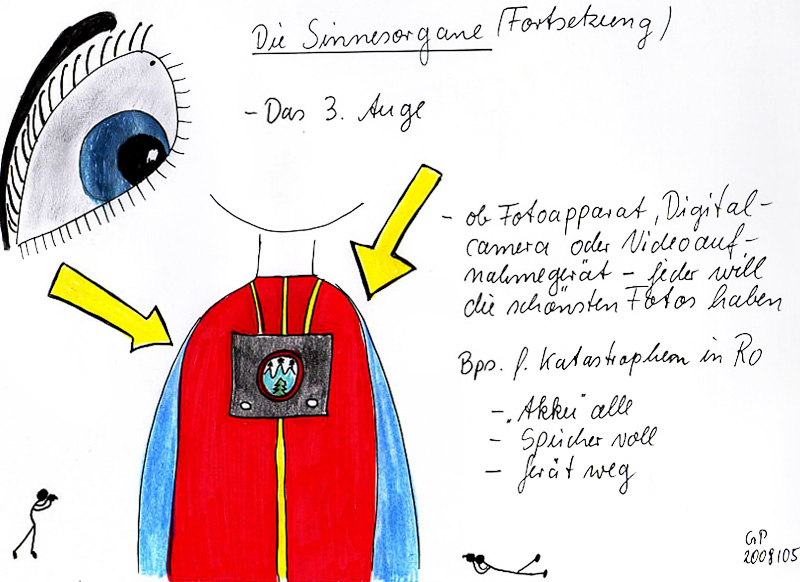 Die Sinnesorgane (Fortsetzung)
- Das 3. Auge
- ob Fotoapparat, Digital-
camera oder Videoauf-
nahmegerät - jeder will
die schönsten Fotos haben
Bps. f. Katastrophen in RO
- "Akku" alle
- Speicher voll
- Gerät weg
GP
2008/05